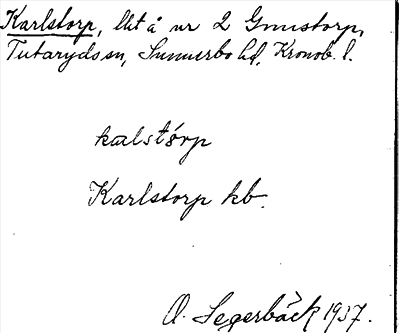 Karlstorp, lht å nr 2 Gmustorp,
Tutaryds sn, Sunnerbo hd, Kronob. l.
kalstórp
Karlstorp kb.
O. Segerbäck 1937.